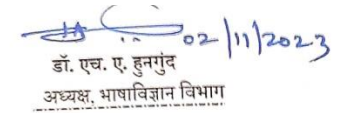 02/11/2023
डॉ. एच. ए. हुनगुंद
अध्यक्ष, भाषाविज्ञान विभाग